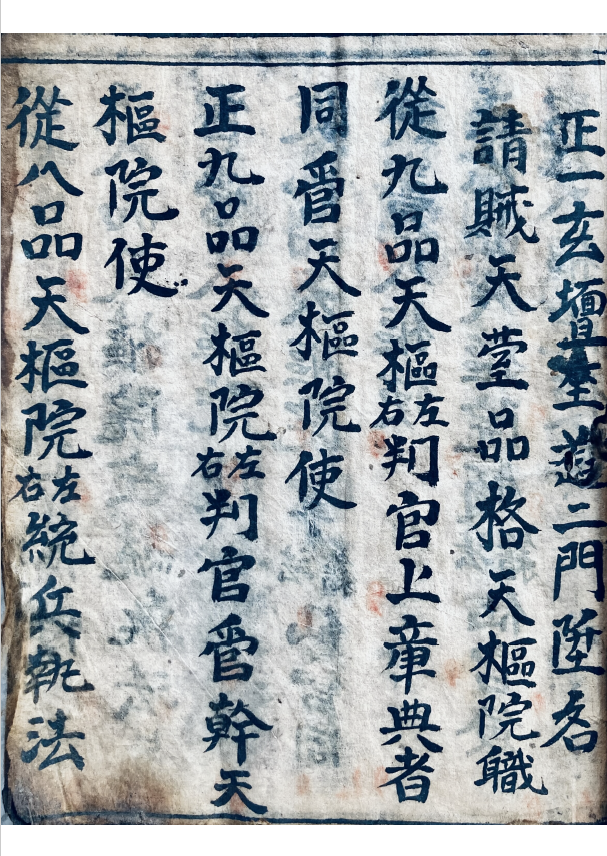 正一玄壇二門陞名
請賊天堂品格天樞院職
從九品天樞左右判官上章典者
同管天樞院使
正九品天樞院左右判官管幹天
樞院使
從八品天樞院左右統兵執法